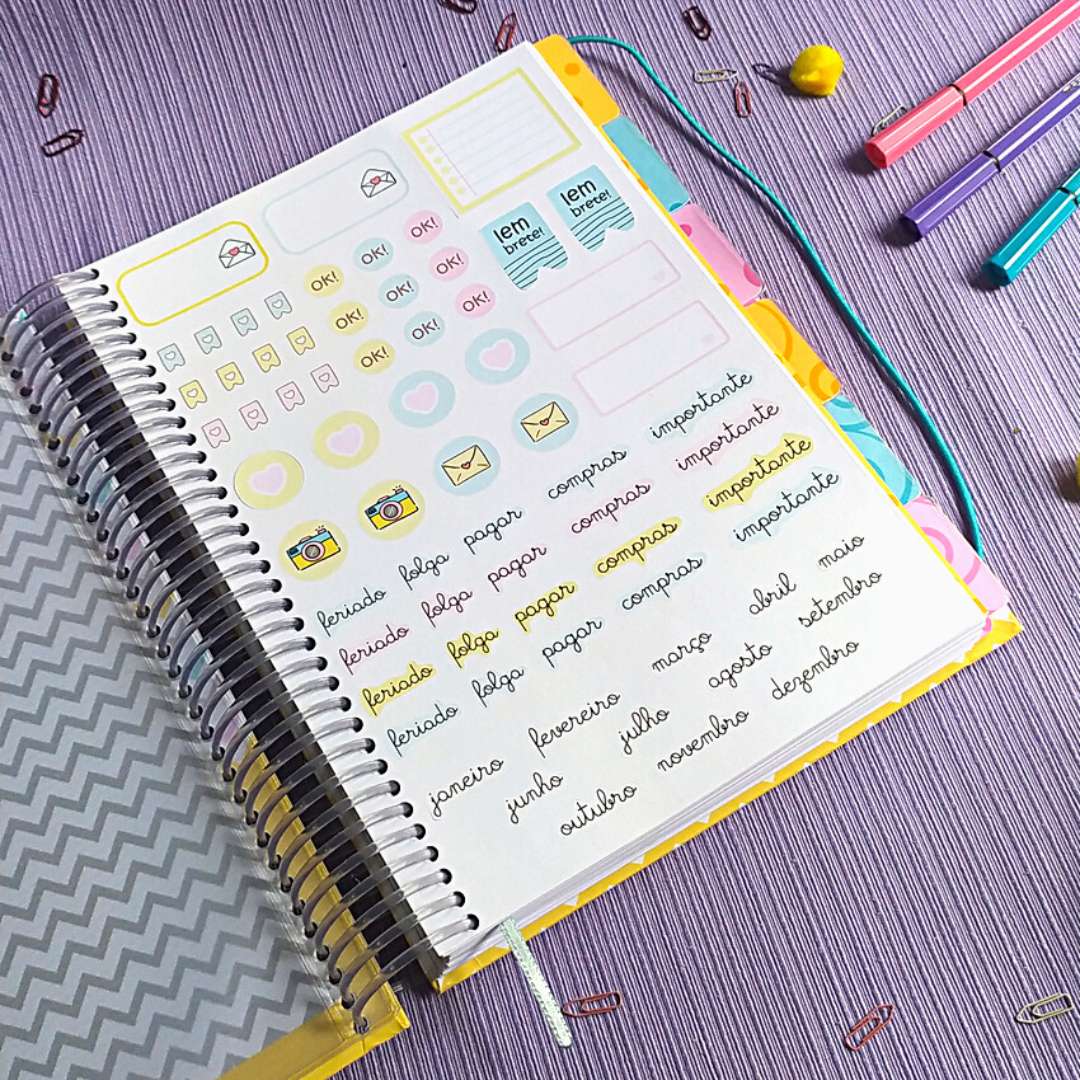 lem
brete!
lem
brete!
OK! OK! OK!
OK! OK! OK!
OK! OK! OK!
feriado folga pagar compras importante
feriado folga pagar compras importante
feriado folga pagar compras importante
feriado folga pagar compras importante
janeiro fevereiro março abril maio
junho julho agosto setembro
outubro novembro dezembro